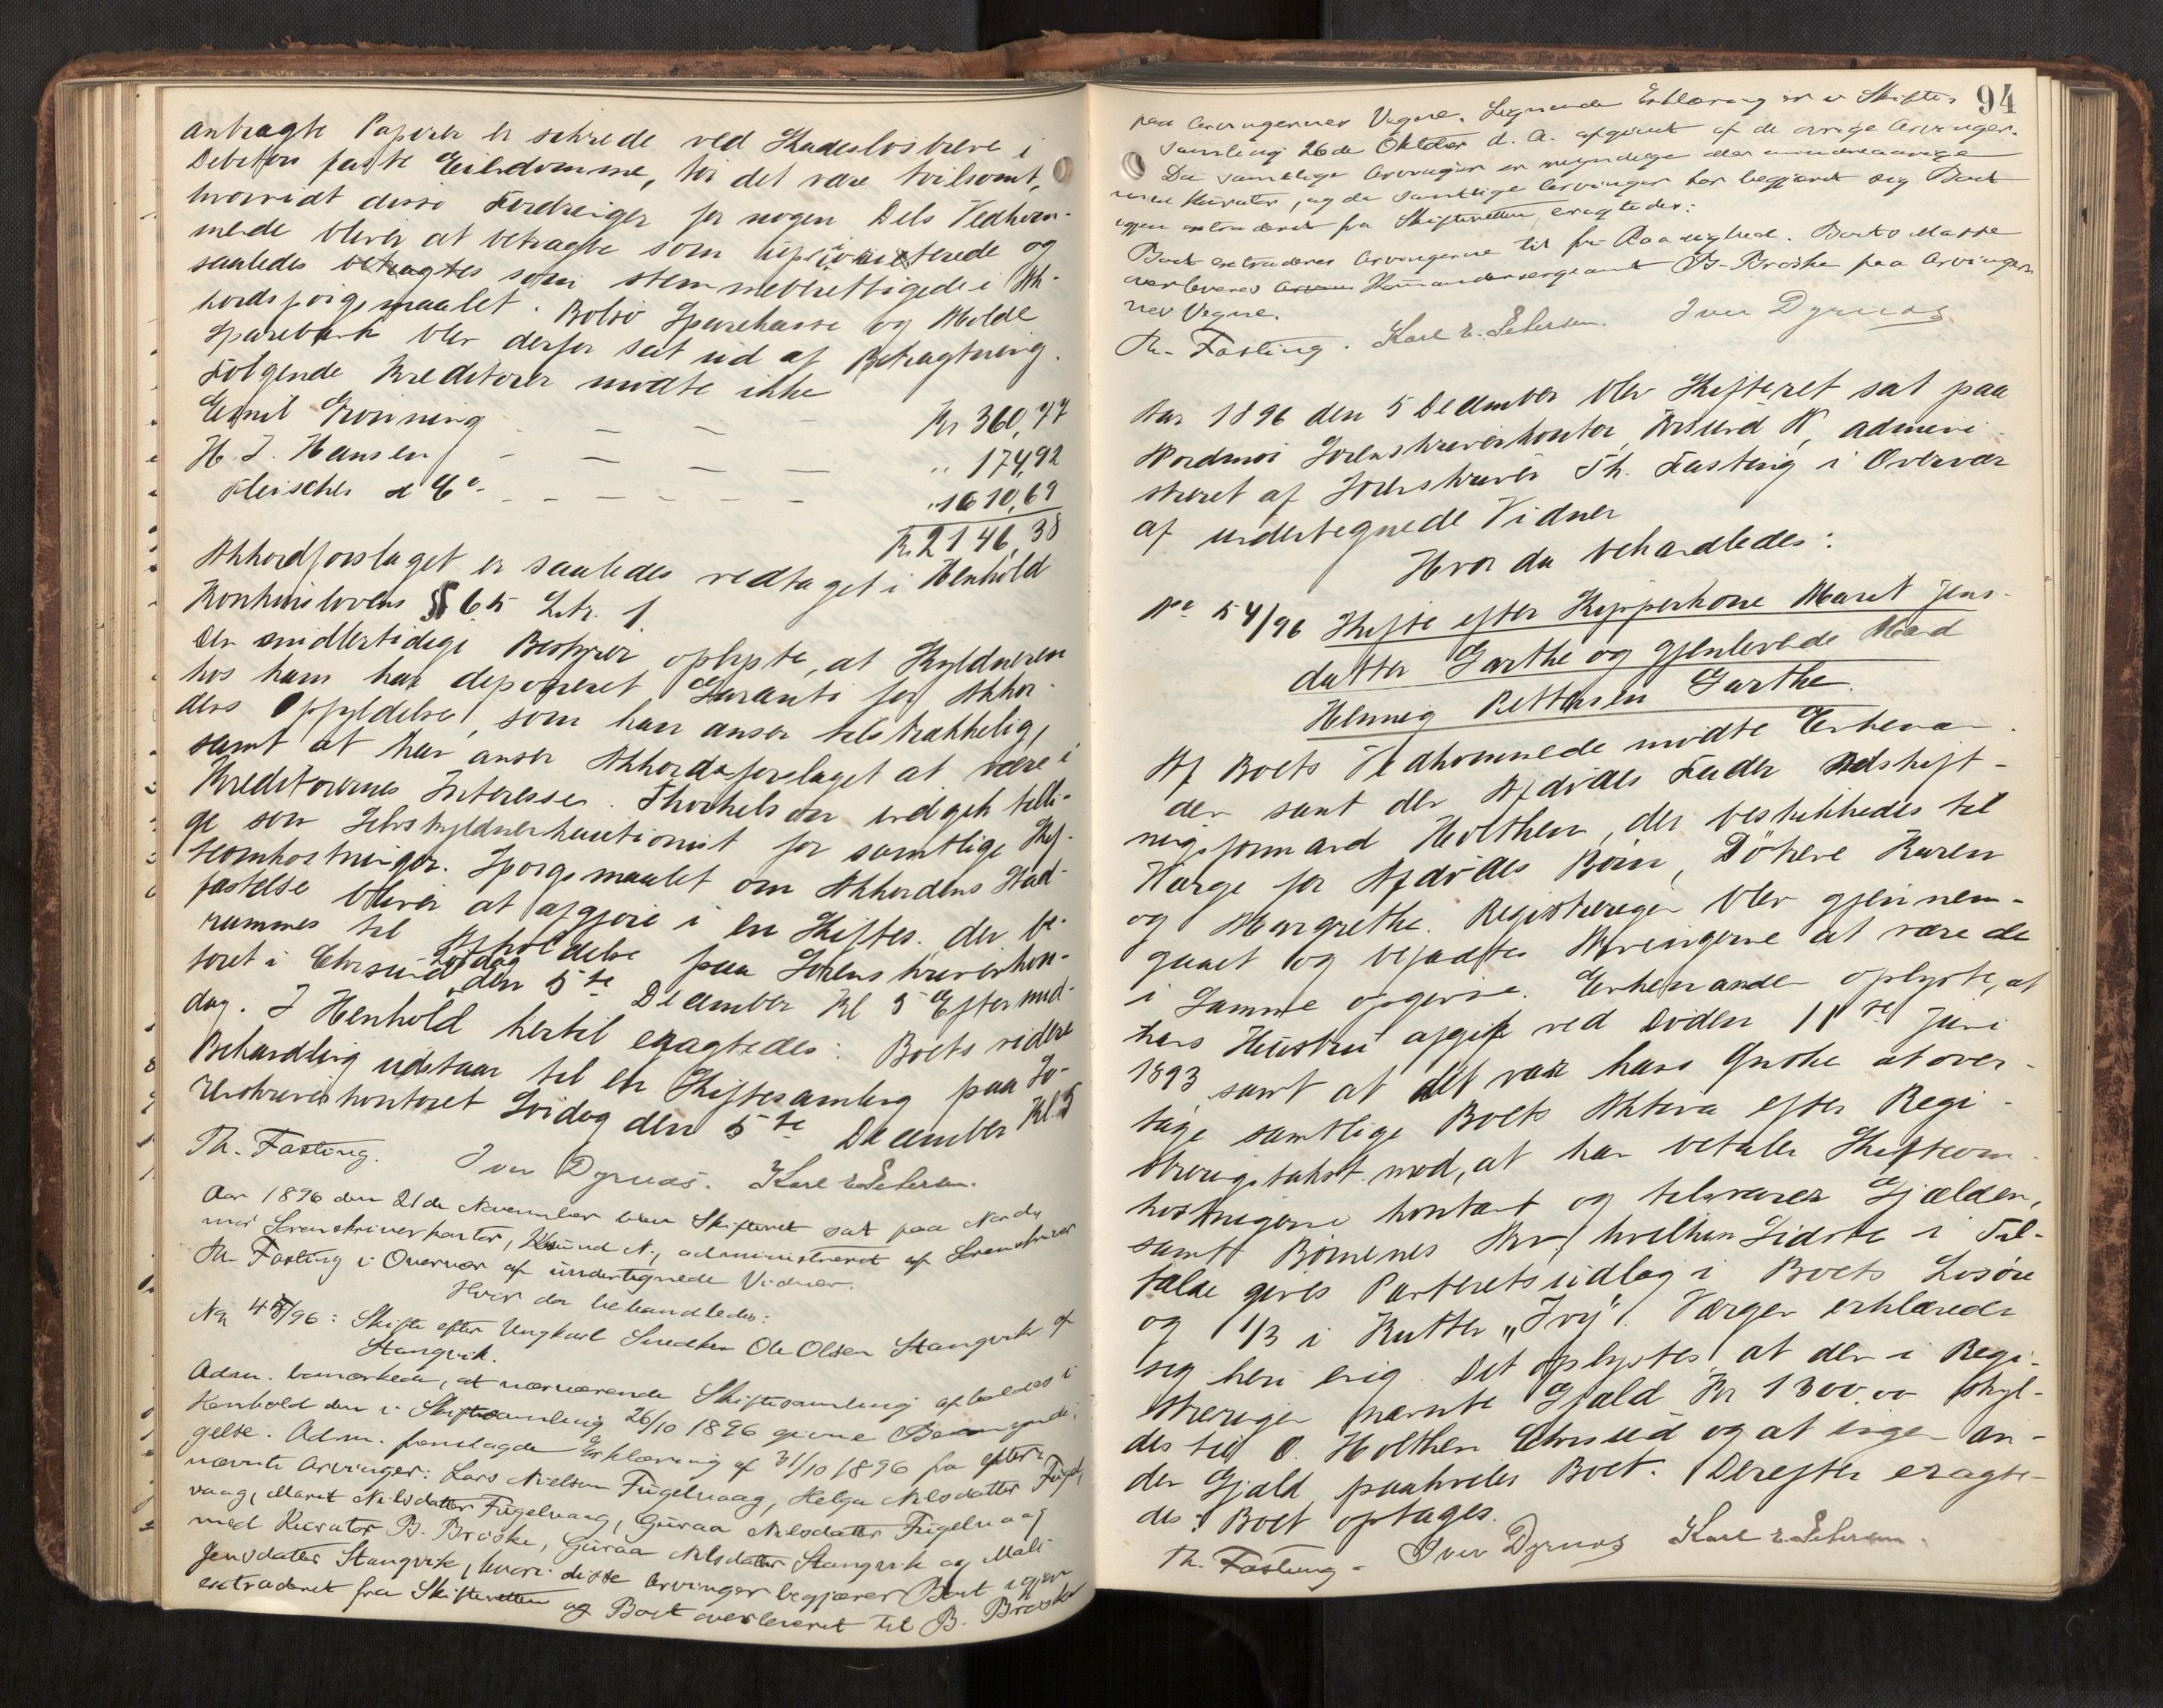 antragte Papirer er sikrede ved Skadesløsbreve i
Debitors faste Eiendomme, tør det være tvilsomt,
hvorvidt disse Fordringer for nogen Dels Vedkom-
mende bliver at betragte som uprioriterede og
saaledes betragtes som stemmeberettigede i Ak-
kordspørgsmaalet. Bolsø Sparekasse og Molde
Sparebank blev derfor sat ud af Betragtning.
Følgende Kreditorer mødte ikke
Emil Grønning - - - - Kr 360,77
H. J. Hansen - - - - " 174,92
Fleischer & Co - - - - " 1610,69
Kr. 2146,38
Akkordforslaget er saaledes vedtaget i Henhold
Konkurslovens § 65 Litr. 1
Den midlertidige Bestyrer oplyste, at Skyldneren
hos ham har deponeret Garanti for Akkor-
dens Opfyldelse, som han anser tilstrækkelig,
samt at han anser Akkordsforslaget at være i
Kreditorernes Interesse. Thorkelson indgik tilli-
ge som Selvskyldnerkautionist for samtlige Skif-
teomkostninger. Spørgsmaalet om Akkordens Stad-
fæstelse bliver at afgjøre i en Skiftes. der be-
rammes til Afholdelse paa Sorenskriverkon-
toret i Chrsund Lørdag den 5te December Kl 5 Eftermid-
dag. I Henhold hertil eragtedes: Boets videre
Behandling udstaar til en Skiftesamling paa So-
renskriverkontoret Lørdag den 5te December Kl. 5
Th. Fasting. Iver Dyrnæs. Karl E. Petersen.
Aar 1896 den 21de November blev Skifteret sat paa Nord-
møre Sorenskriverkontor, Krsund N., administreret af Sorenskriver
Th. Fasting i Overvær af undertegnede Vidner.
Hvor da behandledes:
No 48/96: Skifte efter Ungkarl Snedker Ole Olsen Stangvik af
Stangvik.
Adm. bemærkede, at nærværende Skiftesamling afholdes i
Henhold den i Skiftesamling 26/10 1896 givne Bemyndi-
gelse. Adm. fremlagde Erklæring af 31/10 1896 fra efter-
nævnte Arvinger: Lars Nielsen Fugelvaag, Helga Nilsdatter Fugel-
vaag, Marit Nilsdatter Fugelvaag, Guraa Nilsdatter Fugelvaag
med Kurator B. Brøske, Guraa Nilsdatter Stangvik og Mali
Jensdatter Stangvik, hvori disse Arvinger begjærer Boet igjen
extraderet fra Skifteretten og Boet overleveret til B. Brøske
94
paa Arvingernes Vegne. Lignende Erklæring er i Skifte-
samling 26de Oktober d. A. afgivet af de øvrige Arvinger.
Da samtlige Arvinger er myndige eller mindreaarige
med Kurator, og da samtlige Arvinger har begjæret sig Boet
igjen extraderet fra Skifteretten, eragtedes:
Boet extraderes Arvingerne til fri Raadighed. Boets Masse
overleveres Kommandersergeant B. Brøske paa Arvinger-
nes Vegne.
Th. Fasting. Karl E. Petersen. Iver Dyrnæs
Aar 1896 den 5 December blev Skifteret sat paa
Nordmøre Sorenskriverkontor, Krsund N, admini-
streret af Sorenskriver Th. Fasting i Overvær
af undertegnede Vidner
Hvor da behandledes:
No 54/96 Skifte efter Skipperkone Maret Jens-
datter Garthe og gjenlevende Mand
Henning Pettersen Garthe.
Af Boets Vedkommende mødte Enkeman-
den samt den Afdødes Fader Udskift-
ningsformand Holthen, der beskikkedes til
Værge for Afdødes Børn, Døtrene Karen
og Margrethe. Registreringen blev gjennem-
gaaet og bejaedes Arvingerne at være de
i Samme opgivne. Enkemanden oplyste, at
hans Hustru afgik ved Døden 11te Juni
1893 samt at det var hans Ønske at over-
tage samtlige Boets Aktiva efter Regi-
streringstakst mod, at han betaler Skifteom-
kostningerne kontant og tilsvarer Gjælden,
samt Børnenes Arv, hvilken Sidste i Til-
fælde gives Panteretsudlæg i Boets Løsøre
og 1/3 i Kutter „Ivy“. Værgen erklærede
sig heri enig. Det oplystes, at den i Regi-
streringen nævnte Gjæld Kr 1300.00 skyl-
des til O. Holthen Chrsund og at ingen an-
den Gjæld paahviler Boet. Derefter eragte-
des: Boet optages.
Th. Fasting - Iver Dyrnæs Karl E. Petersen.